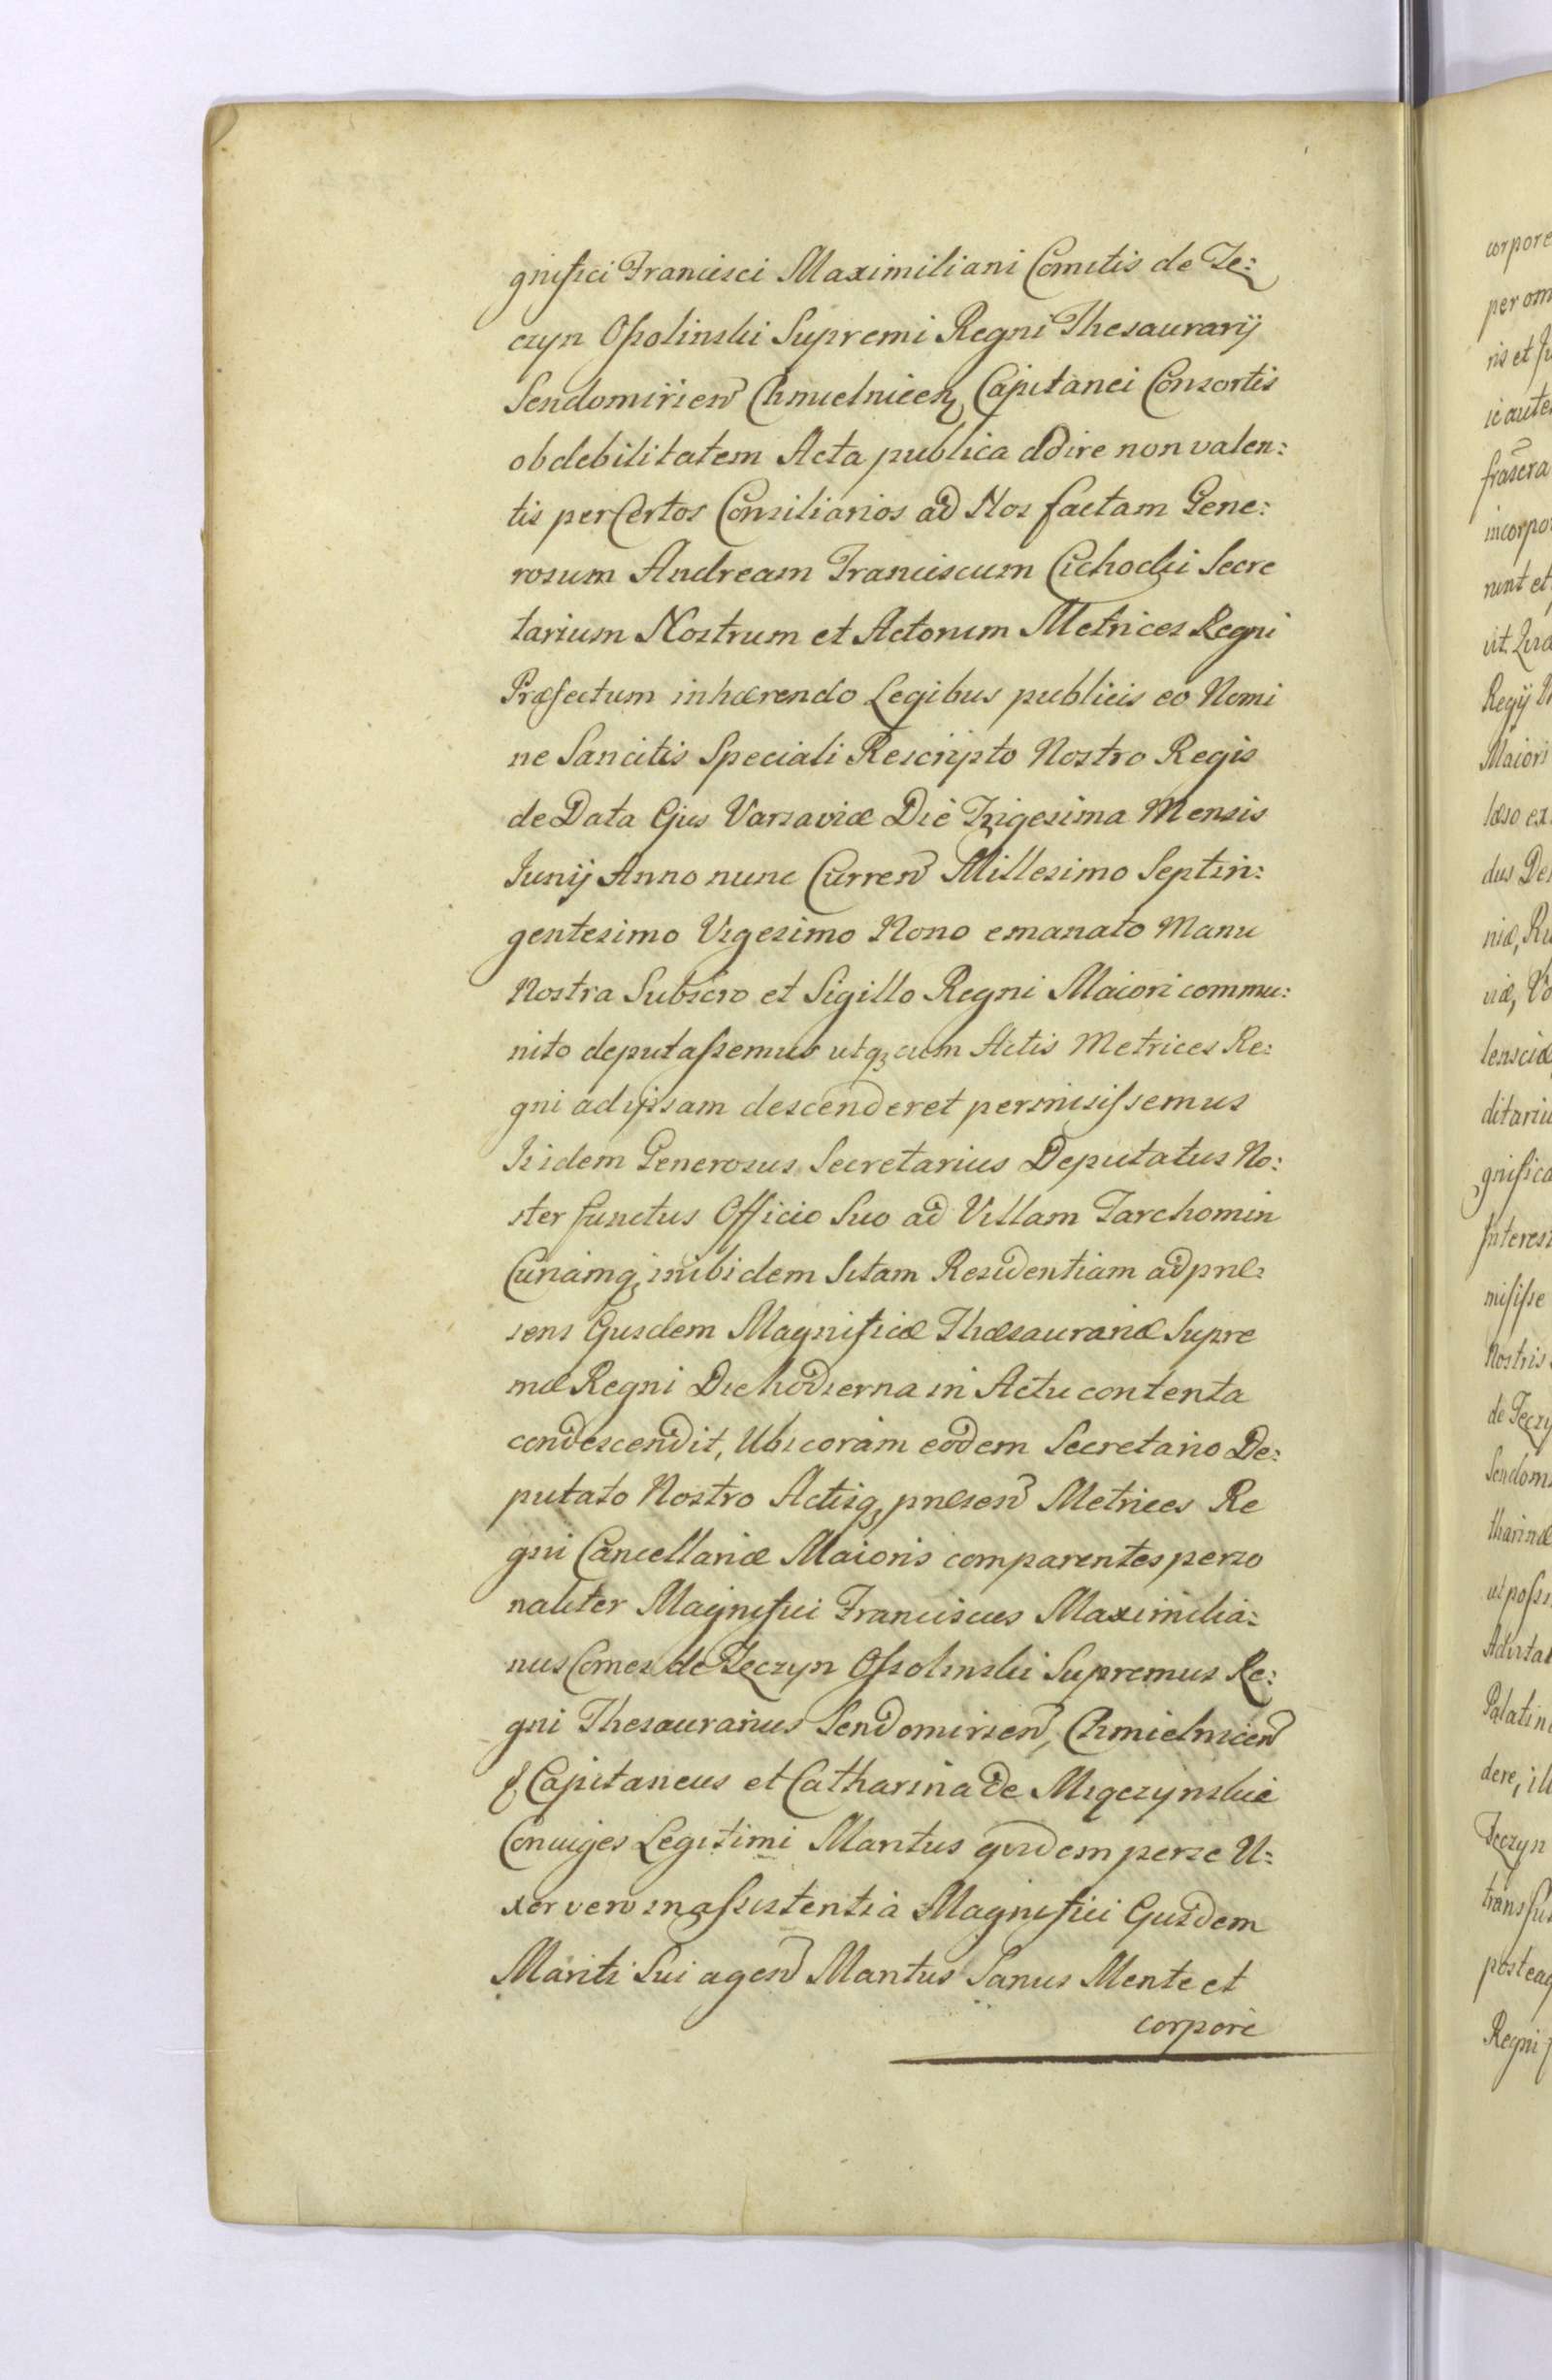 gnifici Francisci Maximiliani Comitis de Tę:
czyn Ossolinski Supremi Regni Thesaurarij
Sendomirien Chmielnicen Capitanei Consortis
ob debilitatem Acta publica adire non valen:
tis per Certos Consiliarios ad Nos factam Gene:
rosum Andream Franciscum Cichocki Secre
tarium Nostrum et Actorum Metrices Regni
Præfectum inhærendo Legibus publicis eo Nomi
ne Sancitis Speciali Rescripto Nostro Regis
de Data Ejus Varsaviæ Die Trigesima Mensis
Junij Anno nunc Curren Millesimo Septin:
gentesimo Vigesimo Nono emanato Manu
Nostra Subscro et Sigillo Regni Maiori commu:
nito deputassemus utq, cum Actis Metrices Re:
gni ad ipsam descenderet permisissemus
Is idem Generosus Secretarius Deputatus No:
ster functus Officio Suo ad Villam Tarchomin
Curiamq, inibidem Sitam Residentiam ad præ:
sens Ejusdem Magnificæ Thæsaurariæ Supre
mæ Regni Die hodierna in Actu contenta
condescendit, Ubi coram eodem Secretario De:
putato Nostro Actisq, præsen Metrices Re
gni Cancellariæ Maioris comparentes perso
naliter Magnifici Franciscus Maximilia:
nus Comes de Tęczyn Ossolinski Supremus Re:
gni Thesaurarius Sendomirien, Chmielnicen
Capitaneus et Catharina de Miączynskie
Coniuges Legitimi Maritus quidem per se U:
xor vero in assistentia Magnifici Ejusdem
Mariti Sui agen Maritus Sanus Mente et
corpore
corpore
per om
ris et Ju
ic aute
frascra
incorpo
runt et
vit. Qua
Regij
Maiori
læso ex
dus De
niæ, Ru
viæ, Vo
lensciæ
ditariu
gnifica
Interes
misisse
Nostris
de Tęczy
Sendom
tharinæ
ut possi
Advsta
Palatin
dere, ill
Tęczyn
transfu
postea
Regni